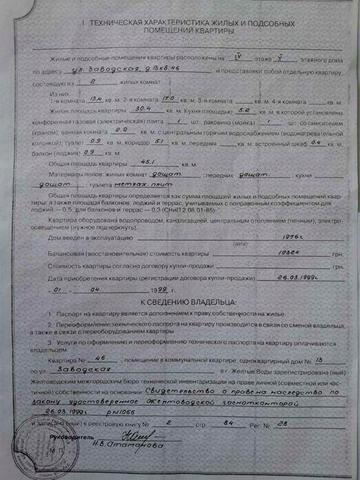 I. ТЕХНИЧЕСКАЯ ХАРАКТЕРИСТИКА ЖИЛЫХ И ПОДСОБНЫХ
ПОМЕЩЕНИЙ КВАРТИРЫ
Жилые и подсобные помещения квартиры расположены на IV этаже V этажного дома
по адресу ул. Заводская, д. 13 кв. 46 и представляют собой отдельную квартиру,
состоящую из 2 жилых комнат
Из них:
1-я комната 13.4 кв. м, 2-я комната 17.0 кв. м, 3-я комната кв. м, 4-я комната кв. м.
Жилая площадь квартиры 30.4 кв. м. Кухня площадью 5.2 кв. м, в которой установлены
конфорочная газовая (электрическая) плита 1 шт., раковина (мойка) 1 шт. со смесителем
(краном), ванная комната кв. м с центральным горячим водоснабжением (водонагревательной
колонкой), туалет 0.9 кв. м, коридор 5.1 кв. м, передняя кв. м, встроенный шкаф 0.4 кв. м,
балкон (лоджия) 0.9 кв. м
Общая площадь квартиры 45.1 кв. м
Материалы полов: жилых комнат дощат. передних дощат. кухни
дощат. туалета метлах. плит
Общая площадь квартиры определяется как сумма площадей жилых и подсобных помещений квар-
тиры а также площадей балконов, лоджий и террас, учитываемых с поправочным коэффициентом для
лоджий — 0,5, для балконов и террас — 0,3 (СНиП 2.08.01-85)
Квартира оборудована водопроводом, канализацией, центральным отоплением (печным), электро-
освещением (нужное подчеркнуть).
Дом введен в эксплуатацию 1976г.
(дата)
Балансовая (восстановительная) стоимость квартиры грн.
Стоимость квартиры согласно договору купли-продажи грн.
Дата приобретения квартиры (регистрации договора купли-продажи) 26.03.1999г.
01 04 1999 г.
К СВЕДЕНИЮ ВЛАДЕЛЬЦА:
1. Паспорт на квартиру является дополнением к праву собственности на жилье.
2. Переоформление технического паспорта на квартиру производится в связи со сменой владельца,
а также в связи с переоборудованием квартиры.
3. Услуги по оформлению и переоформлению технического паспорта на квартиру оплачиваются
владельцем.
Квартира № 46, помещение в коммунальной квартире, одноквартирный дом № 13
по ул. Заводская в г. Желтые Воды зарегистрирована (ный)
Желтоводским межгородским бюро технической инвентаризации на праве личной (совместной или час-
тичной) собственности на основании: Свидетельства о праве на наследство по
закону удостоверенное Желтоводской госнотконторой
26.03.1999г. рN1066
и записано (ны) в реестровую книгу № 2 стр. 84 Рег. № 28
Руководитель
М. П. Н.В. Атаманова